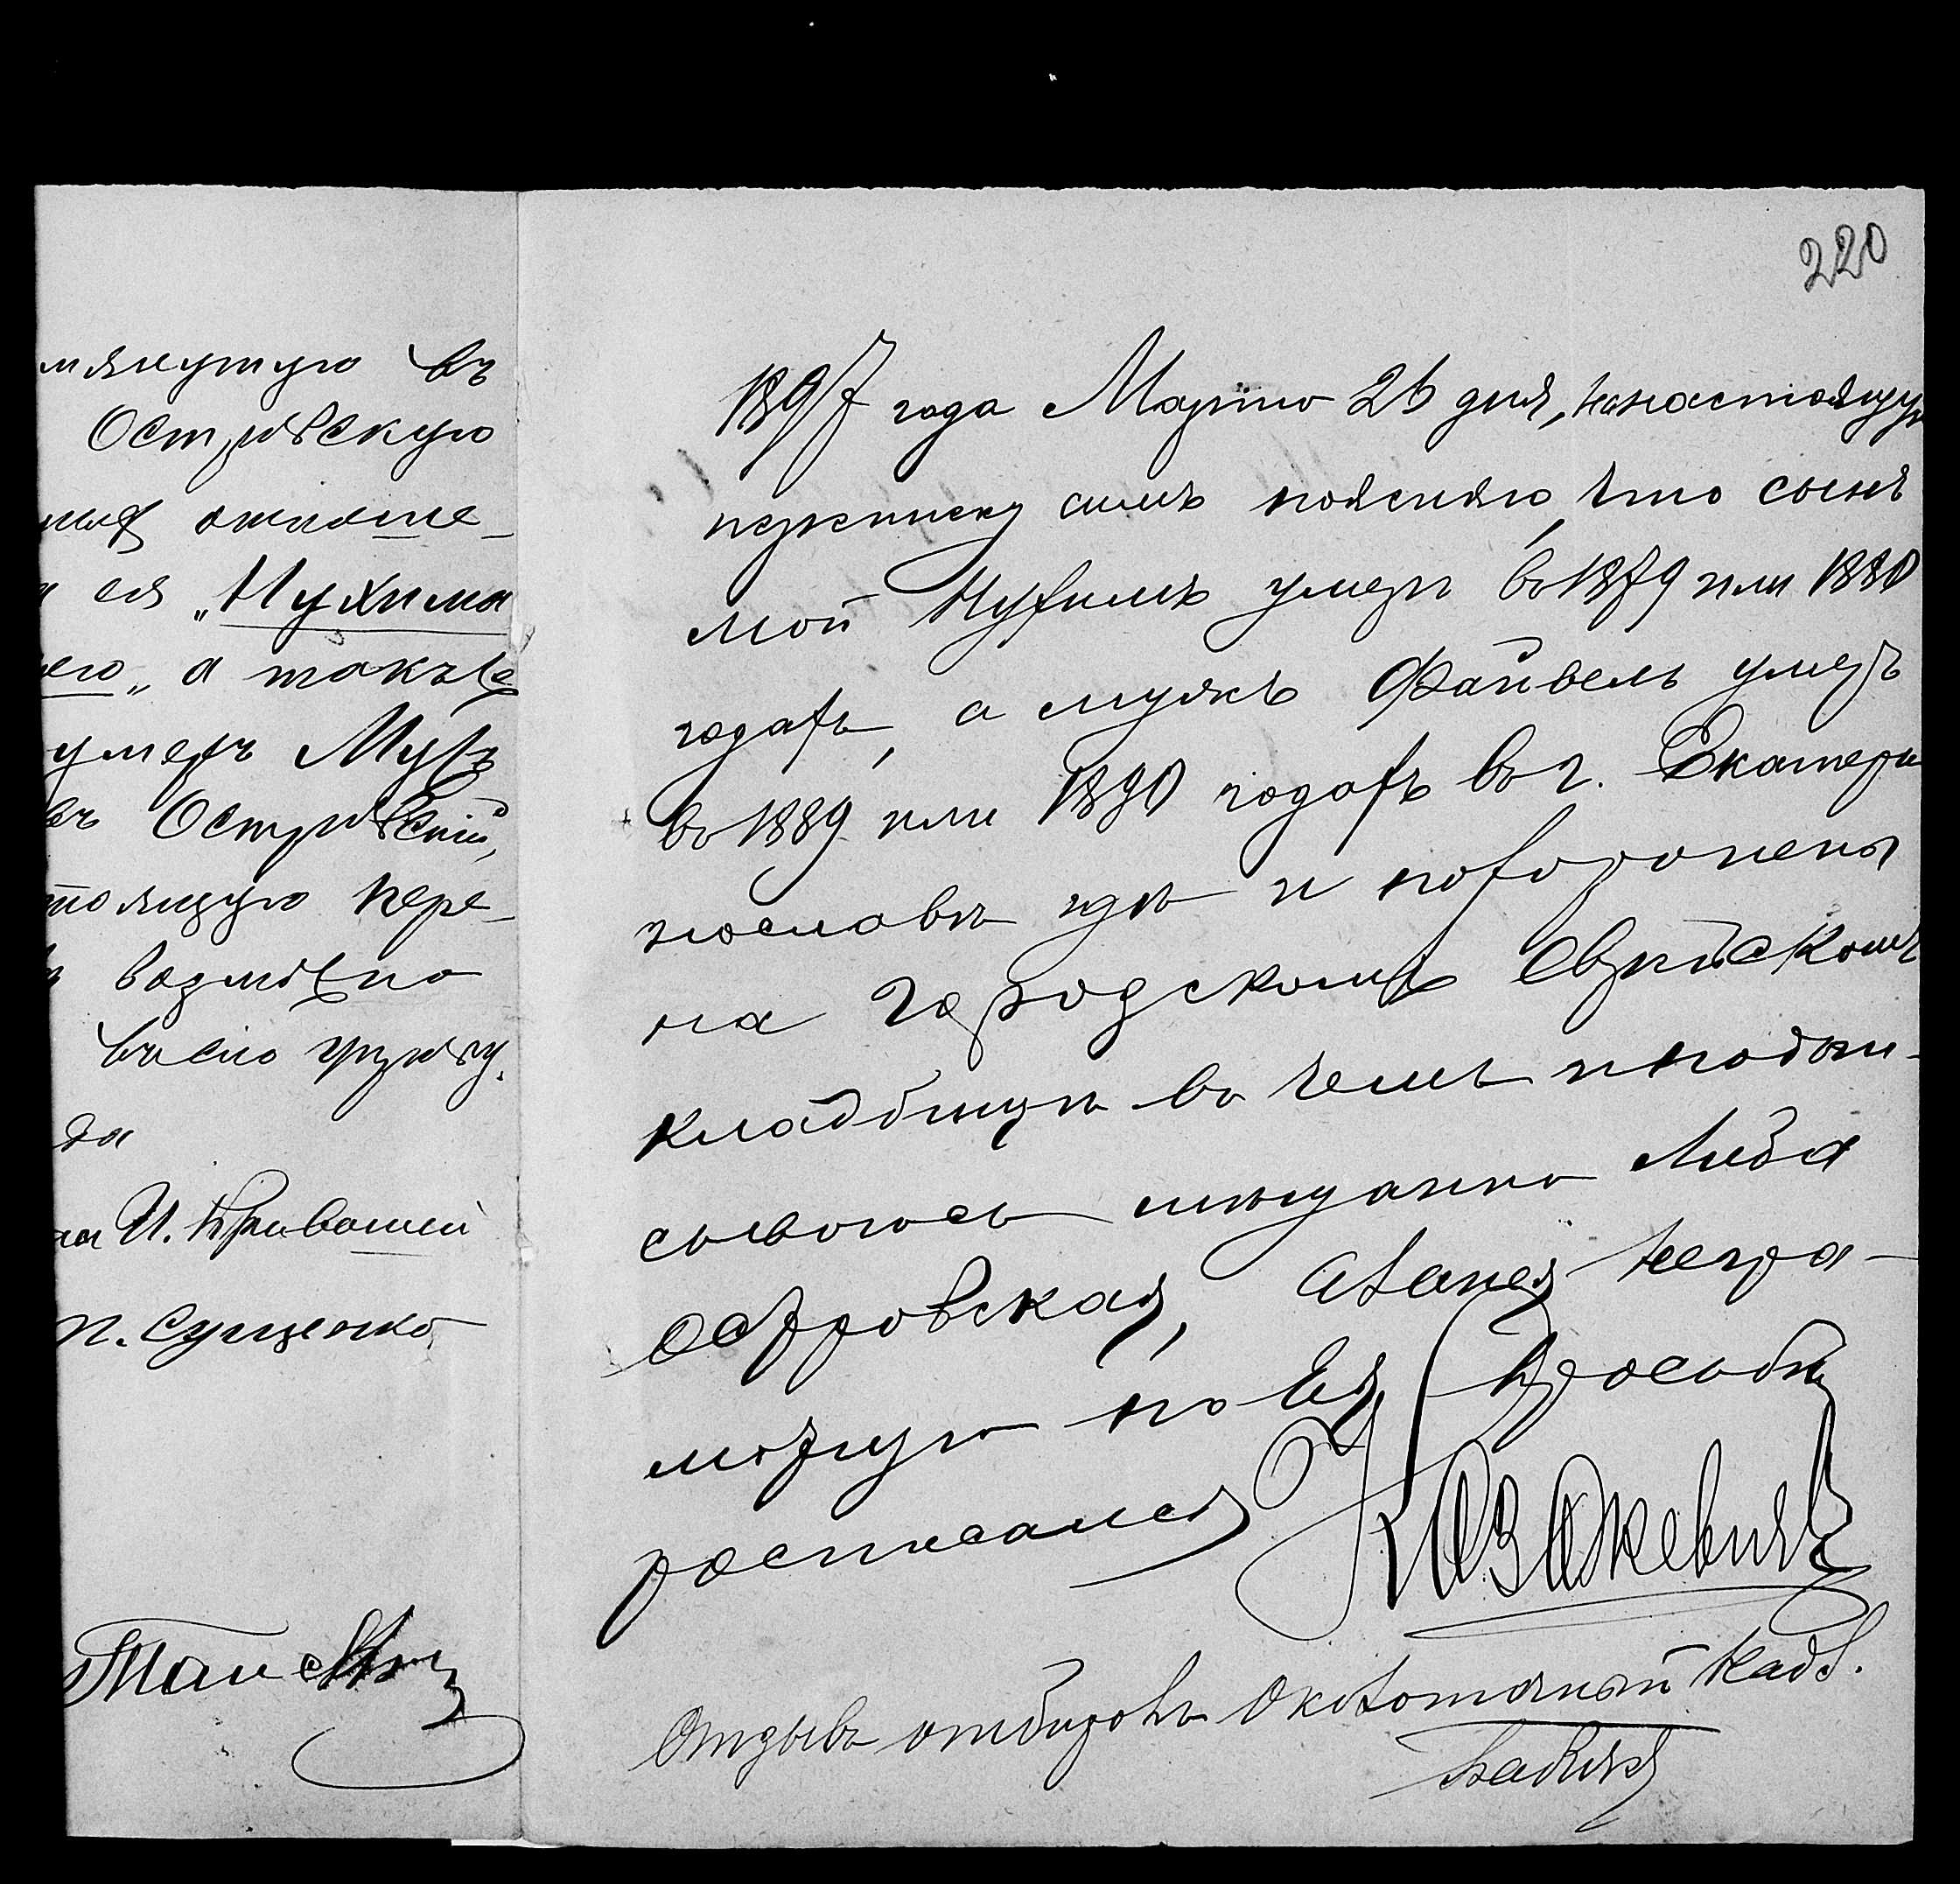 220
мянутую въ
Островскую
отноше-
ея „Нухима
его„ а также
умеръ Мужъ
въ Островскій,
тоящую пере-
возможно
въ сію управу.
да
на И. Кривошей
п. Сущенко
1897 года Марта 26 дня, на настоящую
переписку симъ поясняю, что сынъ
мой Нухимъ умеръ въ 1879 или 1880
годахъ, а мужъ Файвель умеръ
въ 1889 или 1890 годахъ въ г. Екатери
нославѣ гдѣ и похоронены
на городскомъ Еврейскомъ
кладбищѣ въ чемъ и подпи-
сываюсь мѣщанка Люба
Островская, а за нея негра-
мотную по Ея просьбѣ
росписался Козакевичъ
Отзывъ отбиралъ Околоточный Надз.